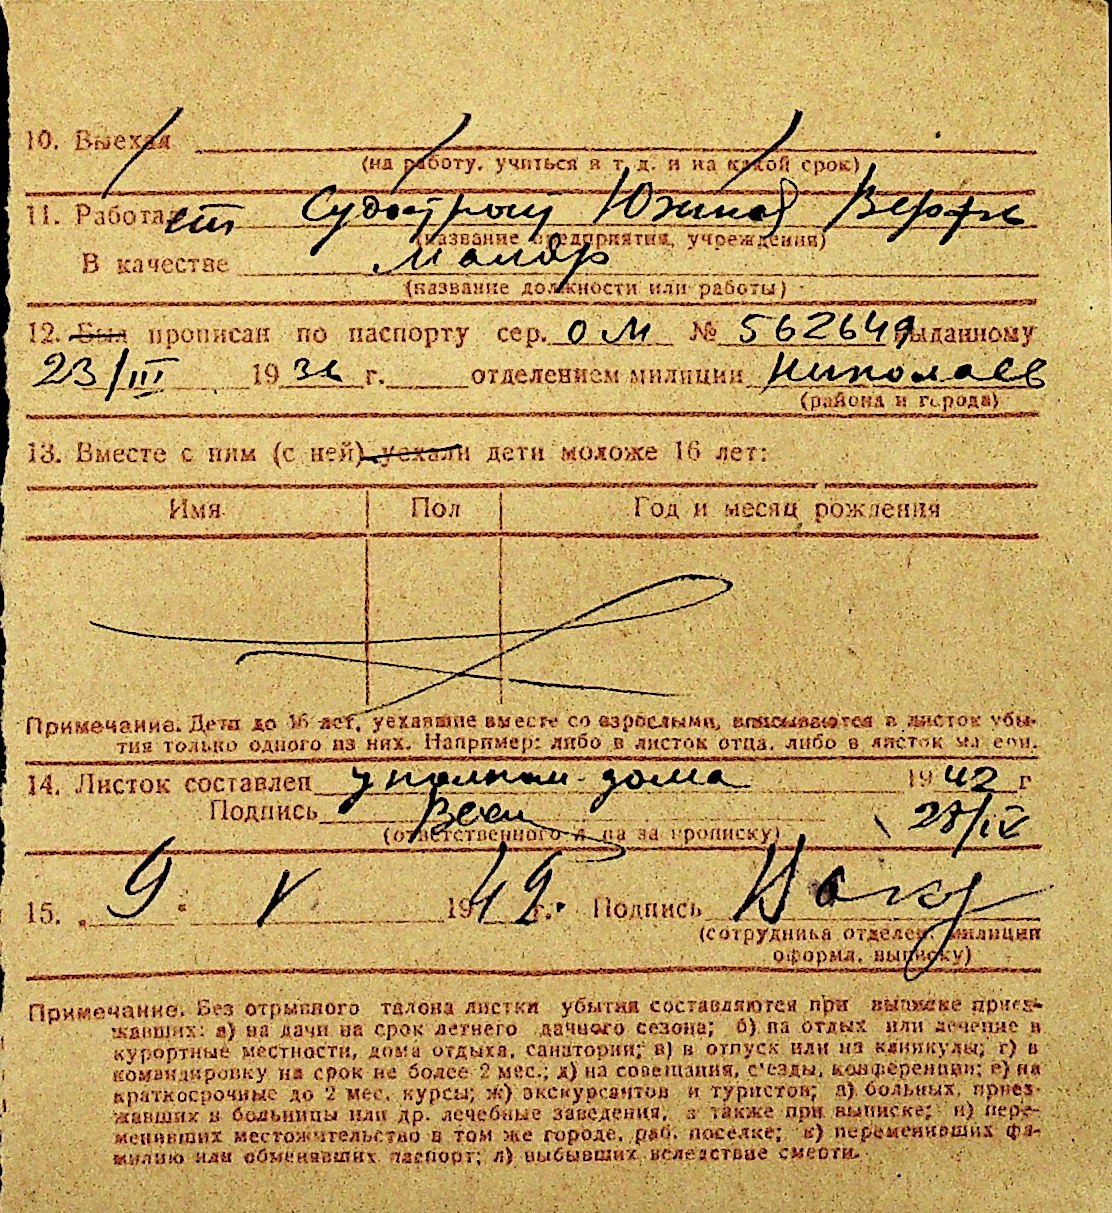 10. Выехал
(на работу, учиться и т. д. и на какой срок)
11. Работает Судострой Южная Верфь
(название предприятия, учреждения)
В качестве маляр
(название должности или работы)
12. Был прописан по паспорту сер. ОМ № 562649 выданному
23/III 1936 г. отделением милиции Николаев
(района и города)
13. Вместе с ним (с ней) уехали дети моложе 16 лет:
Имя Пол Год и месяц рождения
Примечание. Дети до 16 лет, уехавшие вместе со взрослыми, вписываются в листок убы-
тия только одного из них. Например: либо в листок отца, либо в листок матери.
14. Листок составлен дома 1942 г
Подпись 28/IV
(ответственного лица за прописку)
15. „9“ V 1942 г. Подпись
(сотрудника отделен. милиции
оформл. выписку)
Примечание. Без отрывного талона листки убытия составляются при выписке приез-
жавших: а) на дачи на срок летнего дачного сезона; б) на отдых или лечение в
курортные местности, дома отдыха, санатории; в) в отпуск или на каникулы; г) в
командировку на срок не более 2 мес.; д) на совещания, с'езды, конференции; е) на
краткосрочные до 2 мес. курсы; ж) экскурсантов и туристов; з) больных, приез-
жавших в больницы или др. лечебные заведения, а также при выписке; и) пере-
менивших местожительство в том же городе, раб. поселке; к) переменивших фа-
милию или обменявших паспорт; л) выбывших вследствие смерти.